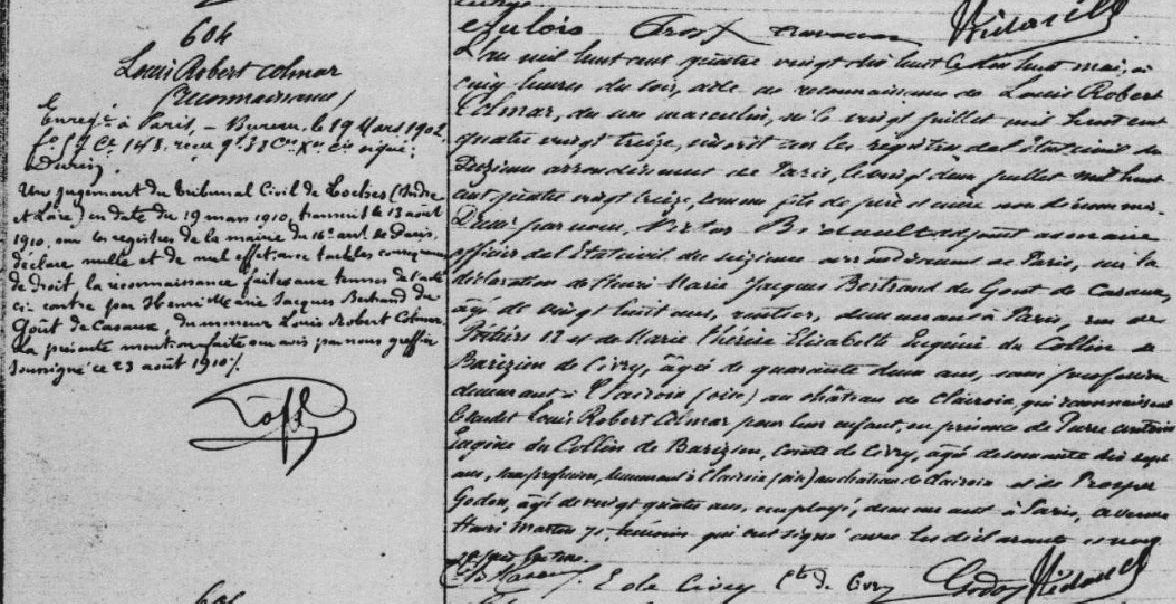 604
Louis Robert Colmar
(reconnaissance)
Enregé à Paris, - Bureau, le 19 Mars 1902
signé:
Un jugement du tribunal Civil de Loches (Indre
et Loire) en date du 19 mars 1910, transcrit le 13 août
1910, sur les registres de la mairie du 16e arrt de Paris,
déclare nulle et de nul effet, avec toutes les
de droit, la reconnaissance faite aux termes de l'acte
ci-contre par Henri Marie Jacques Bertrand du
Gout de Casaux, du mineur Louis Robert Colmar
La présente mention faite par nous greffier
soussigné ce 23 août 1910 /.
L'an mil huit cent quatre vingt dix huit le dix huit mai, à
cinq heures du soir, acte de reconnaissance de Louis Robert
Colmar, du sexe masculin, né le vingt juillet mil huit cent
quatre vingt treize, inscrit sur les registres de l'état civil du
arrondissement de Paris, le vingt deux juillet mil huit
cent quatre vingt treize, comme fils de père et mère non dénommés.
Dressé par nous, Victor Bidault adjoint au maire
officier de l'état civil du seizième arrondissement de Paris, sur la
déclaration de Henri Marie Jacques Bertrand du Gout de Casaux,
âgé de vingt huit ans, rentier, demeurant à Paris, rue de
Poitiers 12 et de Marie Thérèse Elisabeth Eugénie du Collin de
Barizien de Civry, âgée de quarante deux ans, sans profession
demeurant à Clairoix (oise) au château de Clairoix, qui reconnaissent
Louis Robert Colmar pour leur enfant, en présence de Pierre
Eugène du Collin de Barizien, comte de Civry, âgé de soixante dix sept
ans, sans profession, demeurant à Clairoix (oise) au château de Clairoix et de Prosper
Godon, âgé de vingt quatre ans, employé, demeurant à Paris, avenue
Henri Martin 71, témoins qui ont signé avec les déclarants et nous
après lecture.
E de Civry Cte de Civry Godon Bidault